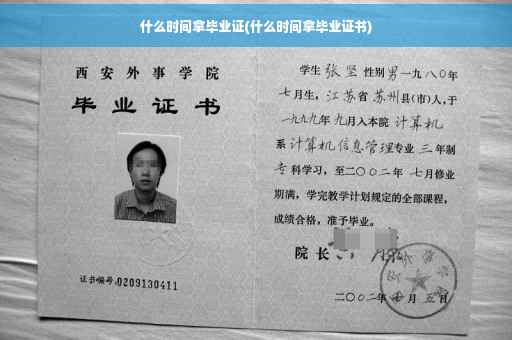 什么时间拿毕业证(什么时间拿毕业证书)
西安外事学院
毕业证书
证书编号:0209130411
学生 张坚 性别 男 一九八〇年
七月生, 江苏省 苏州县(市)人,于
一九九九年 九月入本院 计算机
系 计算机信息管理专业 三 年制
专科学习, 至二〇〇二年 七月修业
期满, 学完教学计划规定的全部课程,
成绩合格, 准予毕业。
院长
二〇〇二年 月 五日